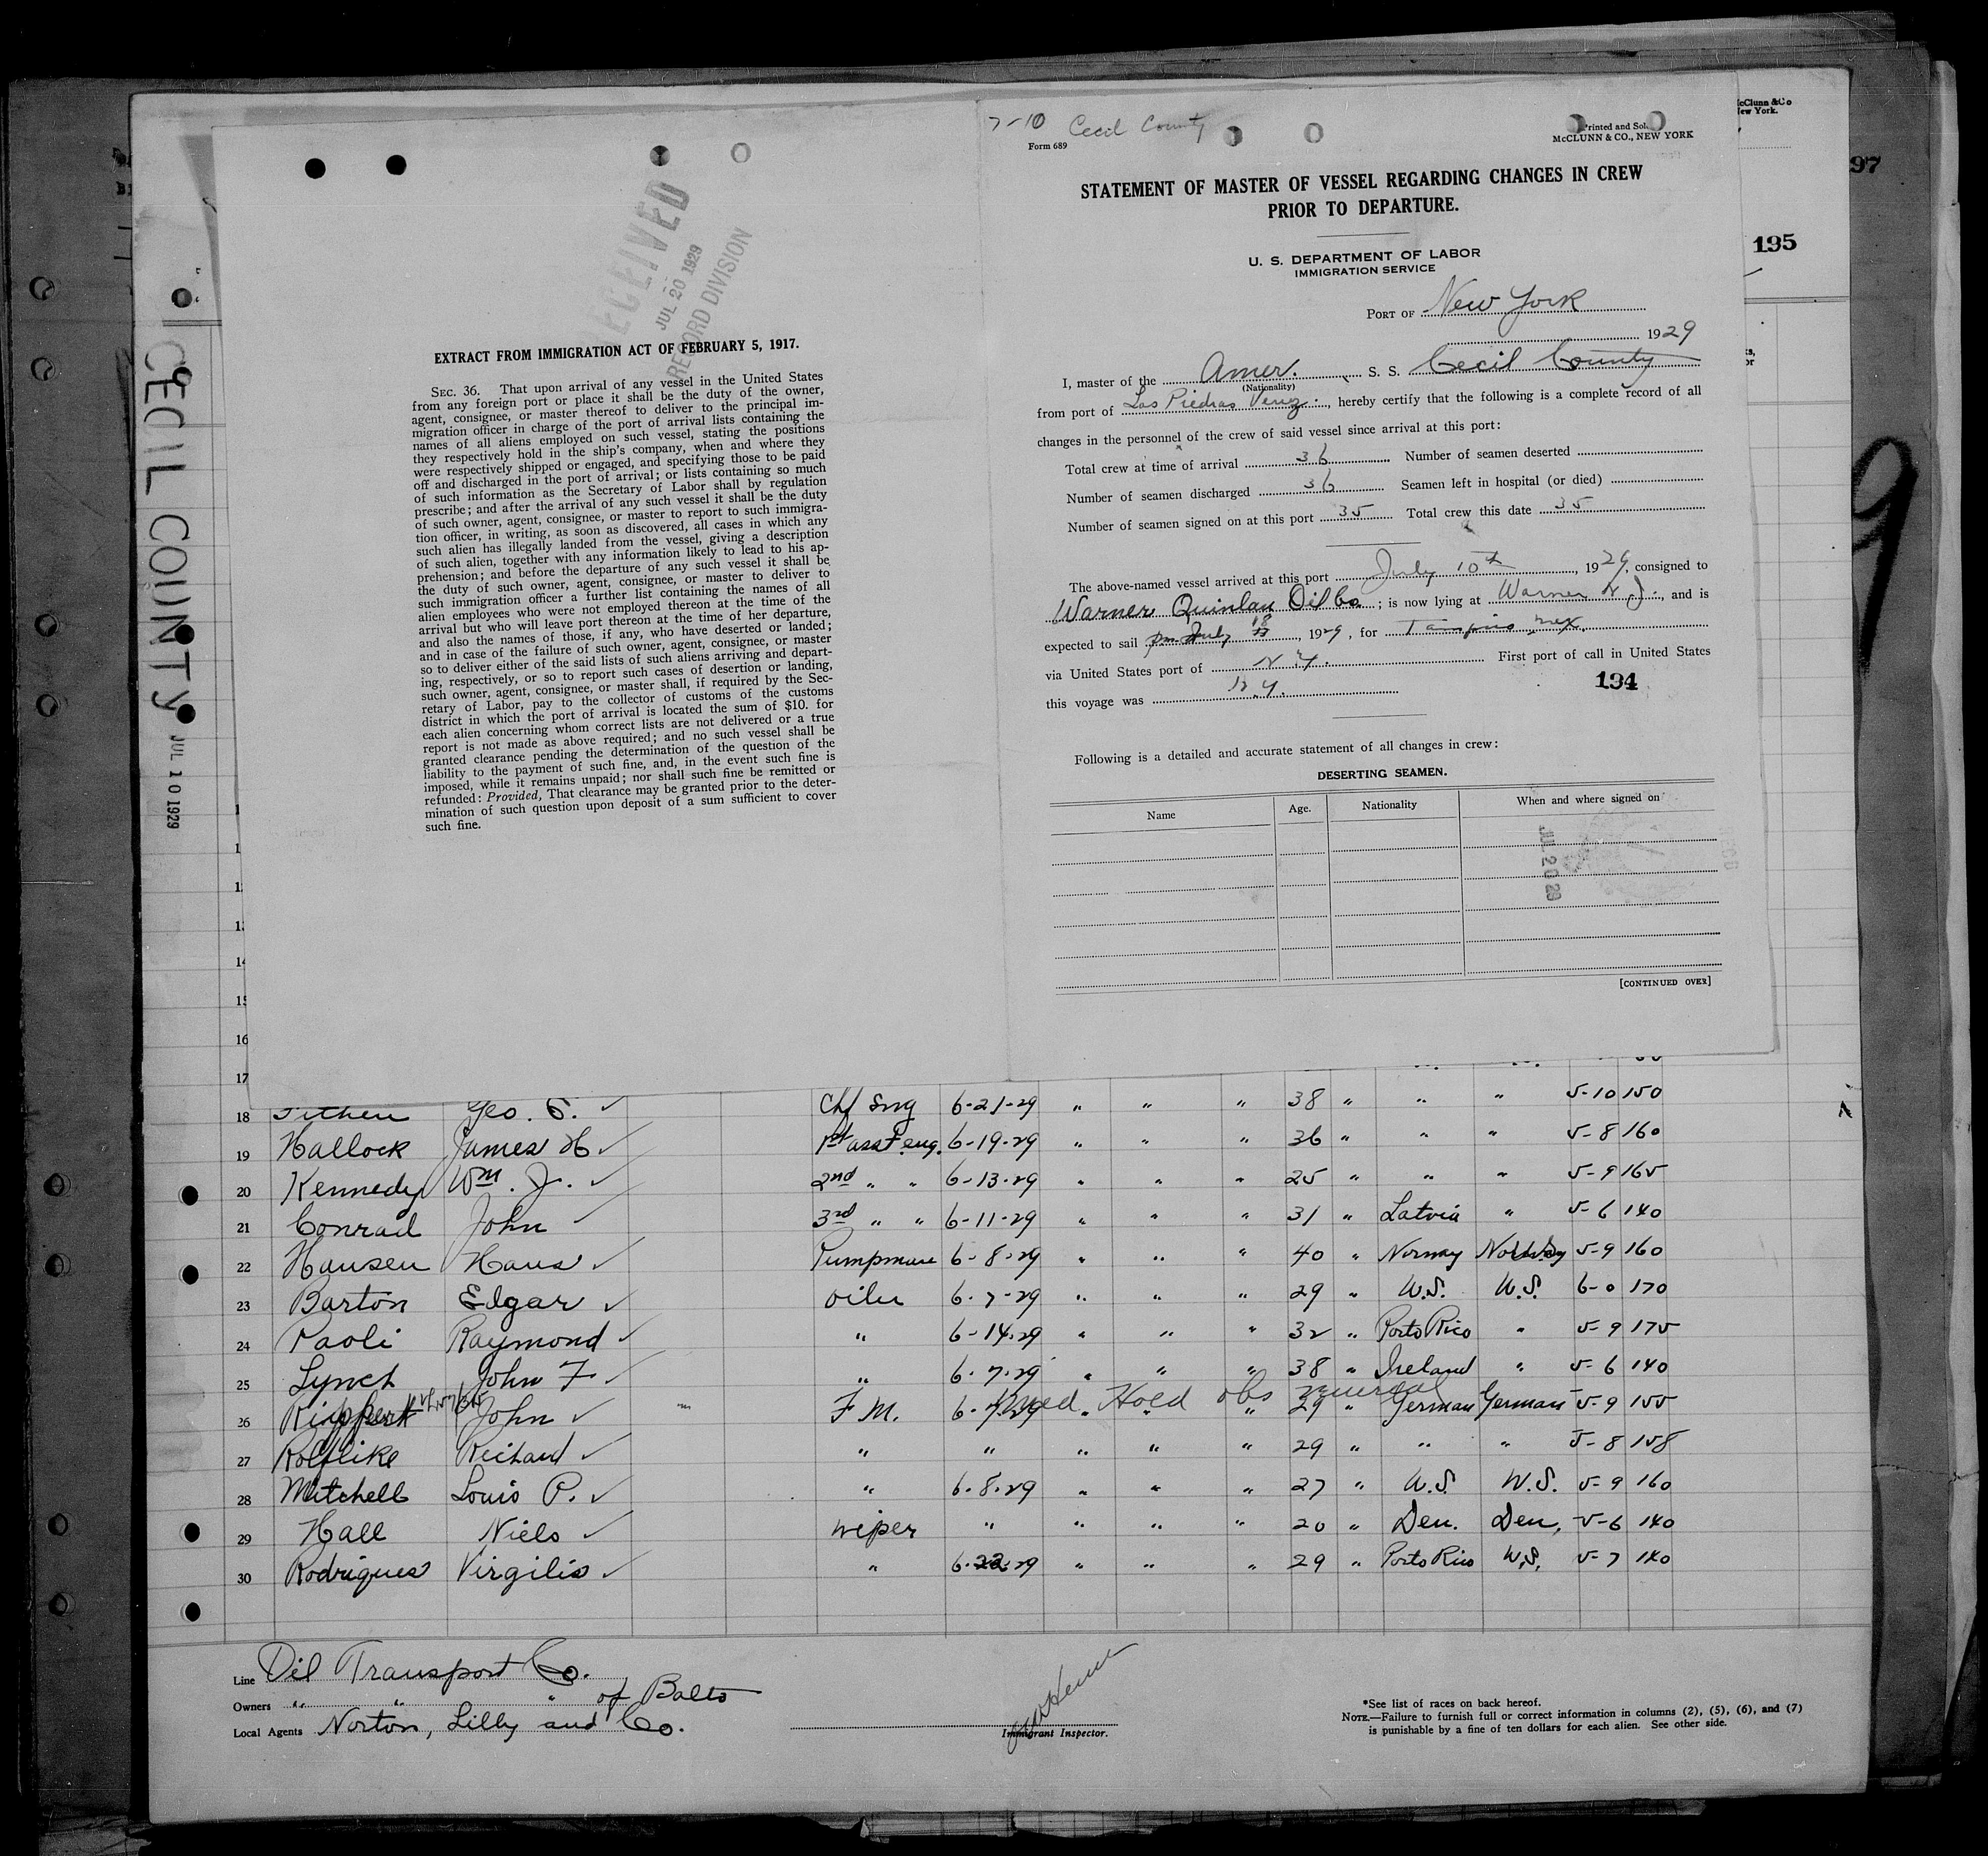 7-10 Cecil County
Form 689
Printed and Sol
McCLUNN & CO., NEW YORK
McClunn & Co
New York.
97
195
STATEMENT OF MASTER OF VESSEL REGARDING CHANGES IN CREW
PRIOR TO DEPARTURE.
U. S. DEPARTMENT OF LABOR
IMMIGRATION SERVICE
PORT OF New York
1929
I, master of the Amer. S. S. Cecil County
(Nationality)
from port of Las Piedras Venez., hereby certify that the following is a complete record of all
changes in the personnel of the crew of said vessel since arrival at this port:
Total crew at time of arrival 36 Number of seamen deserted
Number of seamen discharged 36 Seamen left in hospital (or died)
Number of seamen signed on at this port 35 Total crew this date 35
The above-named vessel arrived at this port July 10th, 1929, consigned to
Warner Quinlan Oil Co.; is now lying at Warner N J., and is
expected to sail July 18, 1929, for Tampico Mex.
via United States port of N.Y. First port of call in United States
this voyage was N.Y.
194
Following is a detailed and accurate statement of all changes in crew:
DESERTING SEAMEN.
Name Age. Nationality When and where signed on
JUL 20 29
[CONTINUED OVER]
RECEIVED
JUL 20 1929
RECORD DIVISION
EXTRACT FROM IMMIGRATION ACT OF FEBRUARY 5, 1917.
SEC. 36. That upon arrival of any vessel in the United States
from any foreign port or place it shall be the duty of the owner,
agent, consignee, or master thereof to deliver to the principal im-
migration officer in charge of the port of arrival lists containing the
names of all aliens employed on such vessel, stating the positions
they respectively hold in the ship's company, when and where they
were respectively shipped or engaged, and specifying those to be paid
off and discharged in the port of arrival; or lists containing so much
of such information as the Secretary of Labor shall by regulation
prescribe; and after the arrival of any such vessel it shall be the duty
of such owner, agent, consignee, or master to report to such immigra-
tion officer, in writing, as soon as discovered, all cases in which any
such alien has illegally landed from the vessel, giving a description
of such alien, together with any information likely to lead to his ap-
prehension; and before the departure of any such vessel it shall be
the duty of such owner, agent, consignee, or master to deliver to
such immigration officer a further list containing the names of all
alien employees who were not employed thereon at the time of the
arrival but who will leave port thereon at the time of her departure,
and also the names of those, if any, who have deserted or landed;
and in case of the failure of such owner, agent, consignee, or master
so to deliver either of the said lists of such aliens arriving and depart-
ing, respectively, or so to report such cases of desertion or landing,
such owner, agent, consignee, or master shall, if required by the Sec-
retary of Labor, pay to the collector of customs of the customs
district in which the port of arrival is located the sum of $10. for
each alien concerning whom correct lists are not delivered or a true
report is not made as above required; and no such vessel shall be
granted clearance pending the determination of the question of the
liability to the payment of such fine, and, in the event such fine is
imposed, while it remains unpaid; nor shall such fine be remitted or
refunded: Provided, That clearance may be granted prior to the deter-
mination of such question upon deposit of a sum sufficient to cover
such fine.
CECIL COUNTY JUL 10 1929
9
14
15
16
17
18 Geo. E. Chf Eng 6-21-29 " " " 38 " " " 5-10 150
19 Hallock James H 1st asst eng. 6-19-29 " " " 36 " " " 5-8 160
20 Kennedy Wm. J. 2nd " " 6-13-29 " " " 25 " " " 5-9 165
21 Conrad John 3rd " " 6-11-29 " " " 31 " Latvia " 5-6 140
22 Hansen Hans Pumpman 6-8-29 " " " 40 " Norway Norway 5-9 160
23 Barton Edgar oiler 6-7-29 " " " 29 " U.S. U.S. 6-0 170
24 Paoli Raymond " 6-14-29 " " " 32 " Porto Rico " 5-9 175
25 Lynch John F " 6-7-29 " " " 38 " Ireland " 5-6 140
26 John F.M. 6-7-29 Hold obs " 29 " German German 5-9 155
27 Richard " " " " " 29 " " " 5-8 158
28 Mitchell Louis P. " 6-8-29 " " " 27 " U.S. U.S. 5-9 160
29 Hall Niels wiper " " " " 20 " Den. Den. 5-6 140
30 Rodrigues Virgilio " 6-22-29 " " " 29 " Porto Rico U.S. 5-7 140
Line Oil Transport Co.
Owners " " " of Balto
Local Agents Norton, Lilly and Co.
Immigrant Inspector.
*See list of races on back hereof.
NOTE.—Failure to furnish full or correct information in columns (2), (5), (6), and (7)
is punishable by a fine of ten dollars for each alien. See other side.